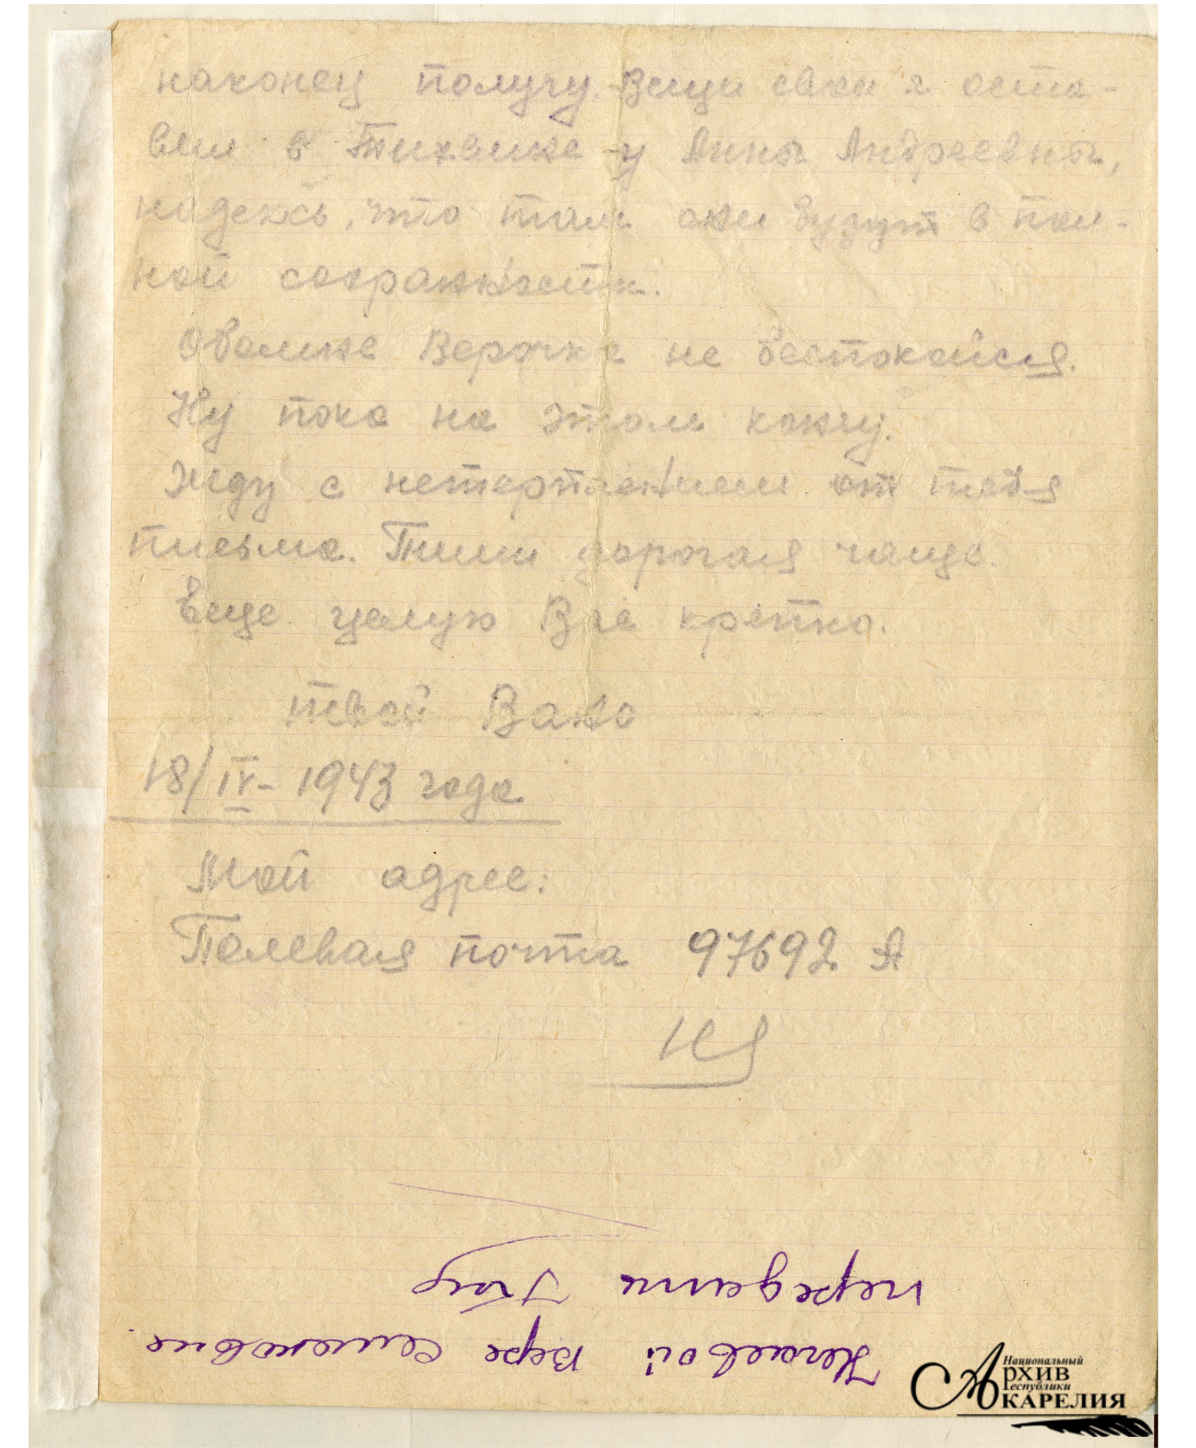 наконец получу. Вещи свои я оста-
вил в Тихвине у Анны Андреевны,
надеюсь, что там они будут в пол-
ной сохранности.
Обо мне Верочка не беспокойся.
Ну пока на этом кончу.
Жду с нетерпением от тебя
письма. Пиши дорогая чаще.
Еще целую Вас крепко.
твой Вано
18/IV- 1943 года
Мой адрес:
Полевая почта 97692 А
передать
Вере Семеновне.
Национальный
Архив
Республики
Карелия